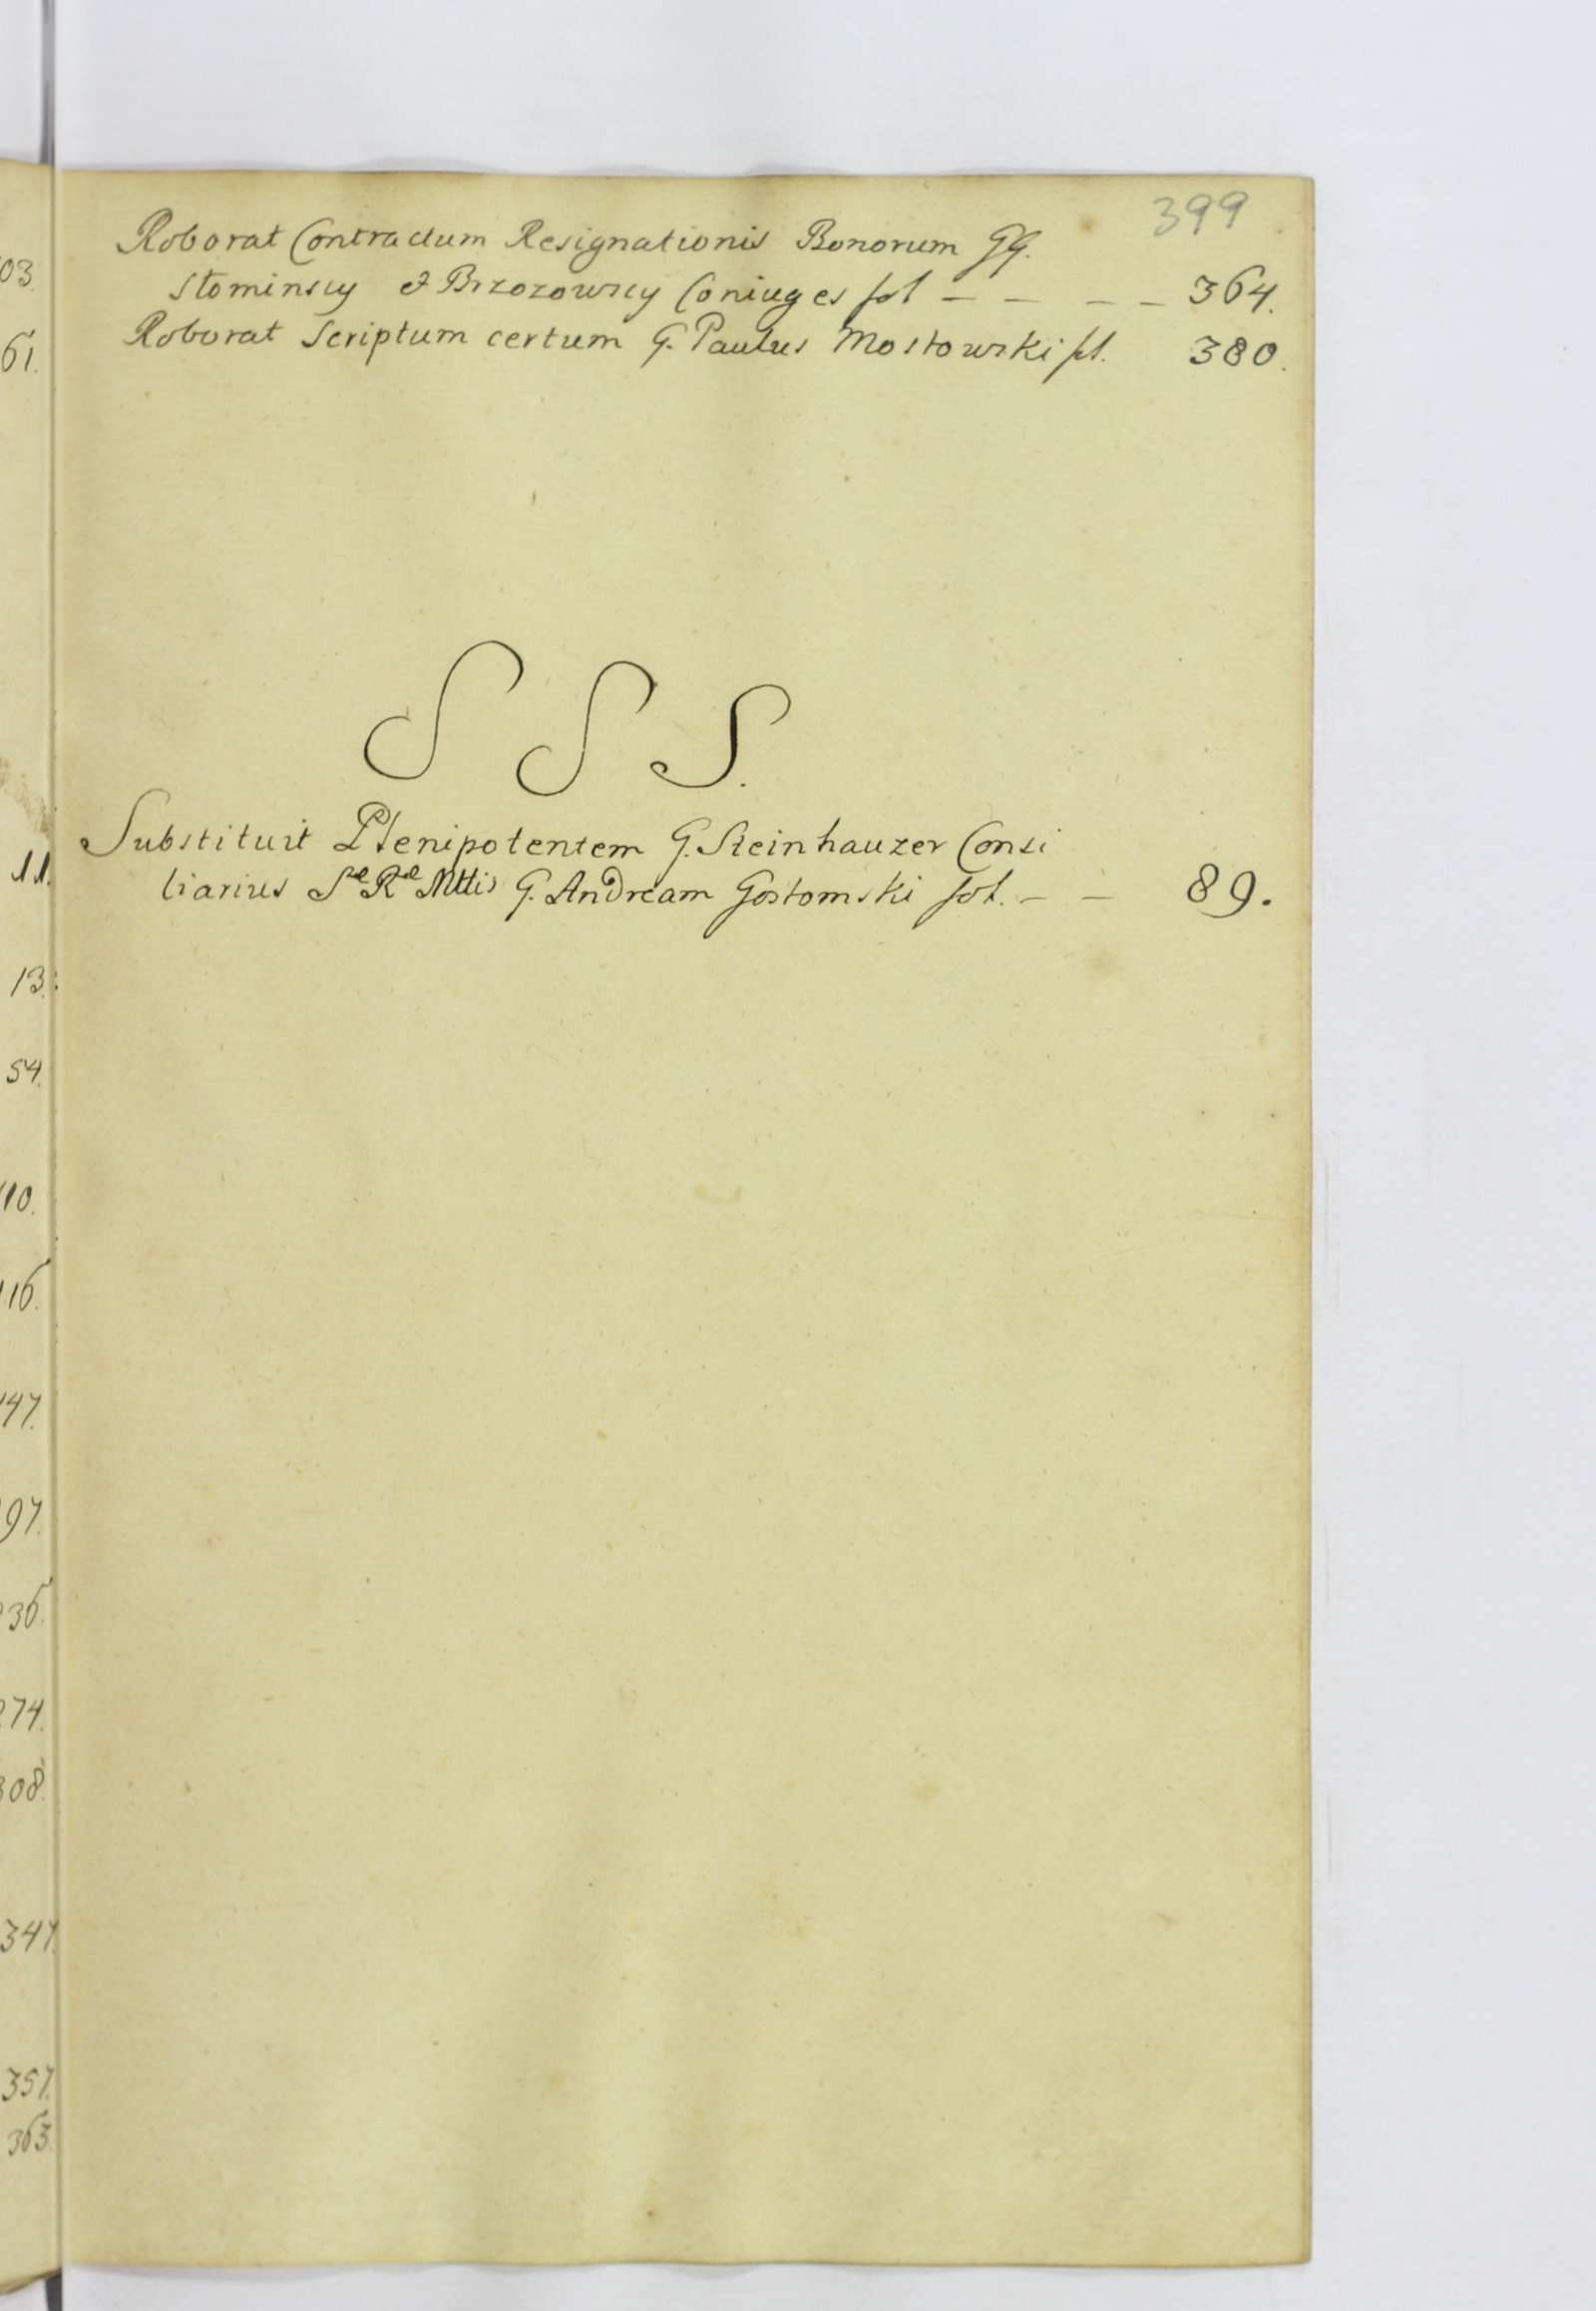 399
Roborat Contractum Resignationis Bonorum GG.
Słominscy et Brzozowscy Coniuges fol — — — — 364.
Roborat Scriptum certum G. Paulus Mostowski fol. 380.
S S S.
Substituit Plenipotentem G. Steinhauzer Consi
liarius Sæ Ræ Mttis G. Andream Gostomski fol. — — 89.
03.
61.
11.
13.
54.
110.
116.
147.
97.
36.
274.
308.
347.
357.
363.